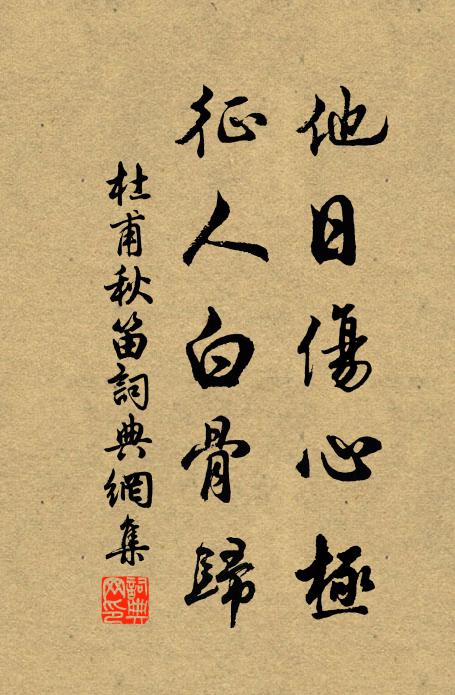 他日傷心極
征人白骨歸
杜甫秋笛詞典網集
詞典
网印